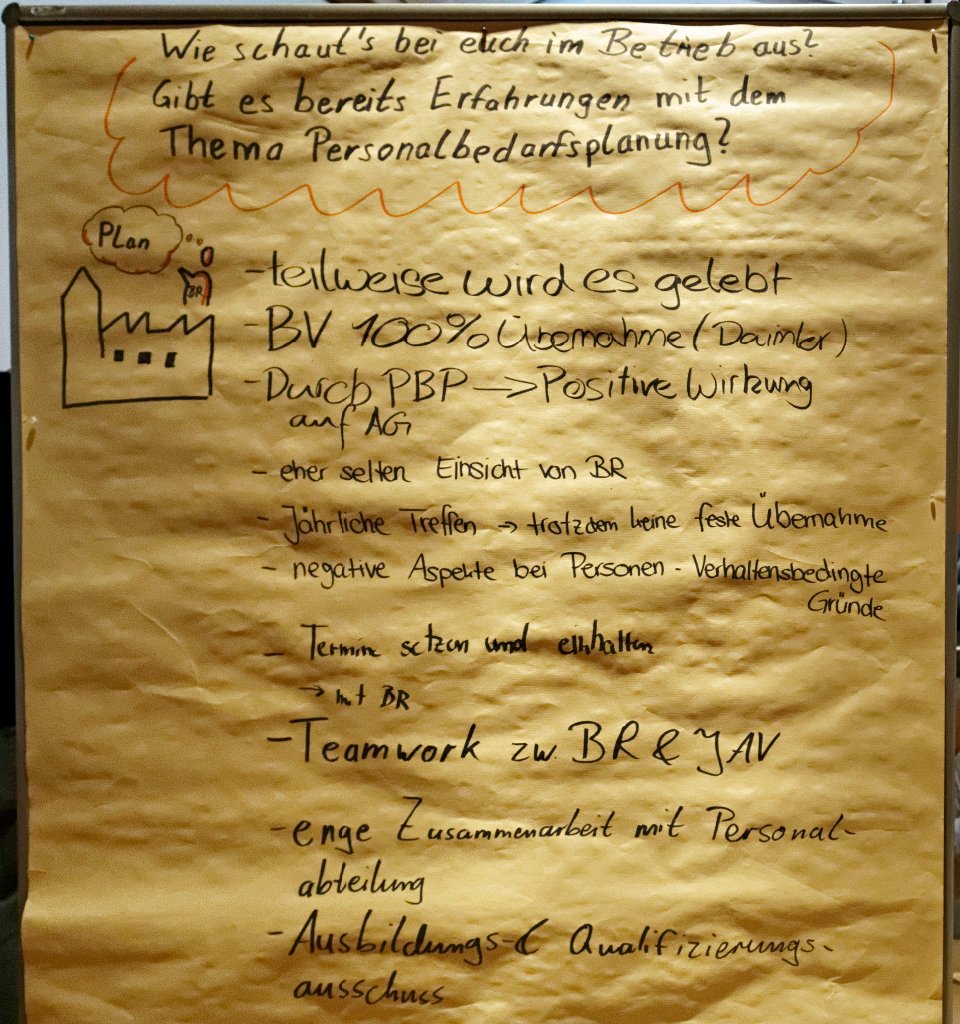 Wie schaut's bei euch im Betrieb aus?
Gibt es bereits Erfahrungen mit dem
Thema Personalbedarfsplanung?
PLan
BR
- teilweise wird es gelebt
- BV 100% Übernahme (Daimler)
- Durch PBP → Positive Wirkung
auf AG
- eher selten Einsicht von BR
- Jährliche Treffen → trotzdem keine feste Übernahme
- negative Aspekte bei Personen - Verhaltensbedingte
Gründe
- Termine setzen und einhalten
→ mit BR
- Teamwork zw. BR & JAV
- enge Zusammenarbeit mit Personal-
abteilung
- Ausbildungs- & Qualifizierungs-
ausschuss